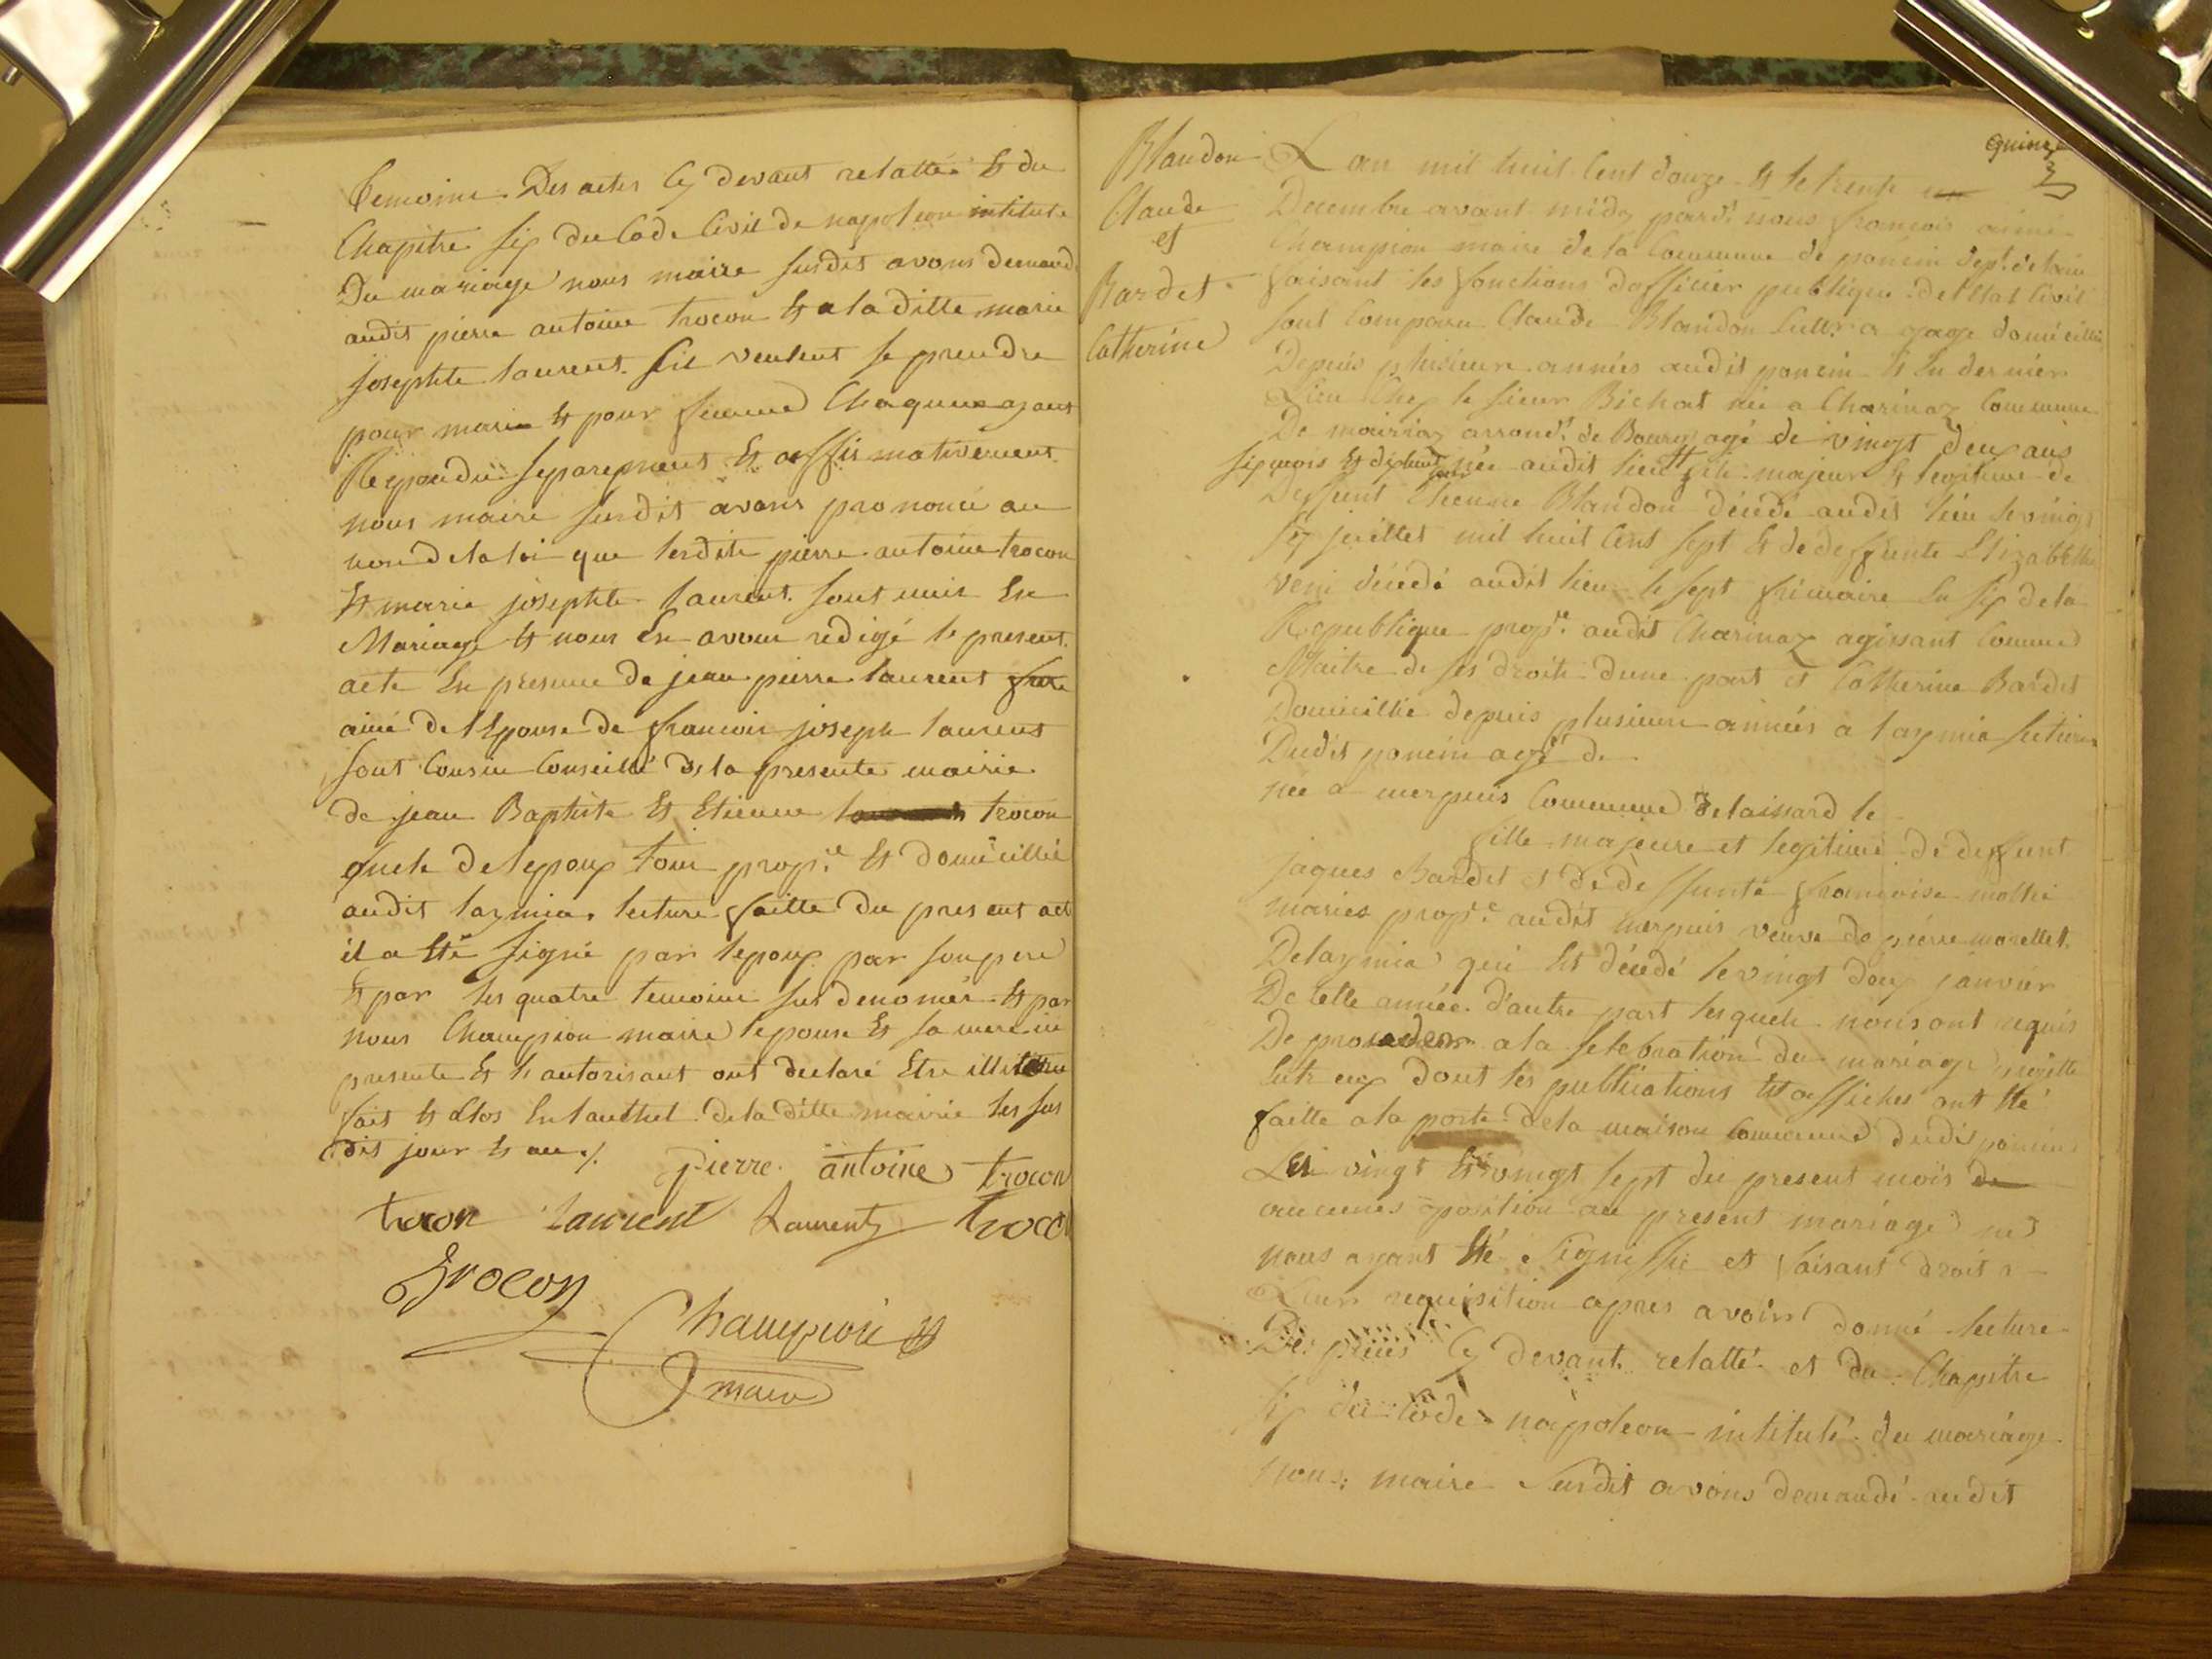 temoins Des actes Cy devant relatté Et du
Chapitre six du Code Civil de napoleon intitulé
Du mariage nous maire susdit avons demandé
audit pierre antoine trocon Et a la ditte marie
josephte laurent sil veulent se prendre
pour marie Et pour femme Chaqunx ayant
Repondu separement Et affirmativement
nous maire susdit avons prononcé au
non de la loi que lesdits pierre antoine trocon
Et marie josephte laurent sont unis En
Mariage Et nous En avons redigé le present
acte En presence de jean pierre laurent frere
ainé de lEpouse de francois joseph laurent
sont Cousin Conseillé de la presente mairie
de jean Baptiste Et Etienne trocon
oncle de lepoux tous prop.re Et domicillié
audit laymia, lecture faitte Du present act
il a Eté signé par lepoux par son pere
Et par les quatre temoins sus denomés Et par
nous Champion maire lepouse Et sa mere ici
presente Et l autorisant ont declaré Etre illiteré
fait Et Clos En lauthel de la ditte mairie les sus
dit jour Et an ./. pierre antoine trocon
trocon laurent Laurent troco
trocon
Champion
maire
quinze
Blandon
Claude
et
Bardet
Catherine
L an mil huit Cent douze Et le trente un
Decembre avant midy pard.t nous francois aimé
Champion maire de la Commune de poncin dep.t de lain
faisant les fonctions dofficier publique de lEtat Civil
sont Comparu Claude Blandon a gage domicillié
Depuis plusieur années audit poncin Et En dernier
Lieu Chez le sieur Bichat né a Charinaz Commune
De arrond.t de Bourg agé de vingt deux ans
six mois Et né audit lieu fils majeur Et legitime de
Deffunt Etienne Blandon décédé audit lieu le vingt
six juillet mil huit Cens sept Et de deffunte Elizabethe
décédé audit lieu le sept frimaire En six de la
Republique prop.re audit Charinaz agissant Comme
Maitre de ses droits dune part et Catherine Bardet
Domicillié depuis plusieurs années a laymia section
Dudit poncin agé de
née a merpuis Commune de laissard le
fille majeure et legitime de deffunt
jaques Bardet et de deffunte francoise
mariés prop.re audit merpuis veuve de pierre morellet
De laymia qui Est décédé le vingt doux janvier
De Cette année d'autre part lesquels nous ont requis
De proceder a la selebration du mariage projetté
Entr eux dont les publications Et affiches ont Eté
faitte a la porte de la maison Commune dudit poncin
Les vingt Et vingt sept du present mois de
aucunes oposition au present mariage ne
nous ayant Eté signiffié et faisant droit a
Leur requisition apres avoir donné lecture
Des pieces Cy devant relatté et du Chapitre
six du Code napoleon intitulé du mariage
nous maire susdit avons demandé audit